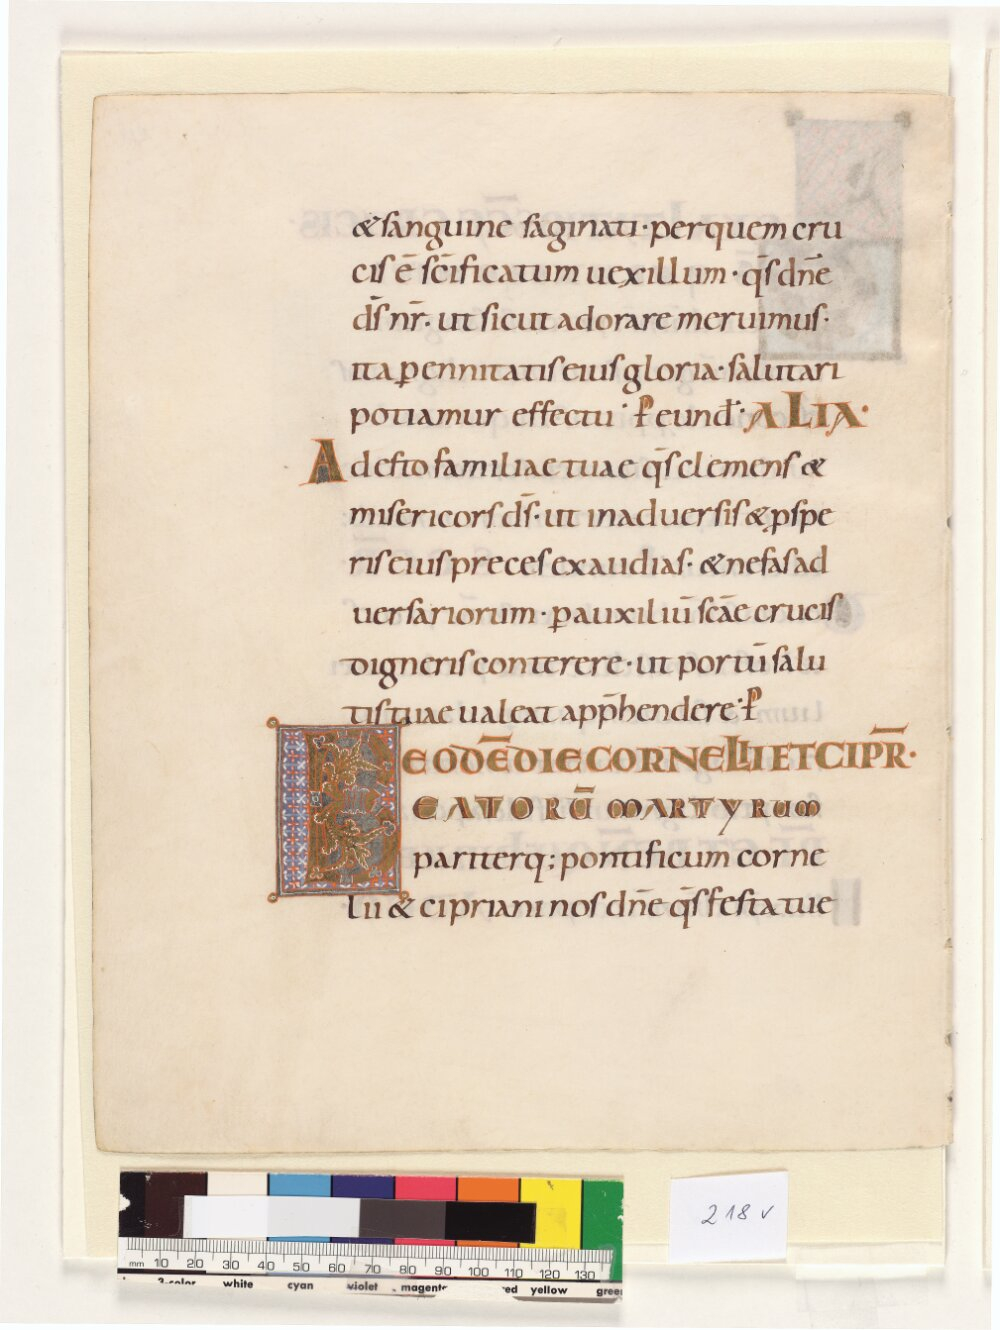 &sanguine saginati · perquem cru
cis ē sc̄ificatum uexillum · q̄s dn̄e
d̄s nr̄ · ut sicut adorare meruimus ·
ita ꝑennitatis eius gloria · salutari
potiamur effectu · ꝑ eund̄ · ALIA ·
Adesto familiae tuae q̄s clemens &
misericors d̄s · ut inaduersis & ꝓspe
ris eius preces exaudias · & nefas ad
uersariorum · ꝑ auxiliū scāe crucis
digneris conterere · ut portū salu
tis tuae ualeat app̄hendere · ꝑ
EODĒ DIE CORNELII ET CIPR̄ ·
BEATORŪ MARTYRUM
pariterq; pontificum corne
lii & cipriani nos dn̄e q̄s festa tue
218 v
mm 10 20 30 40 50 60 70 80 90 100 110 120 130
3-color white cyan violet magenta red yellow green